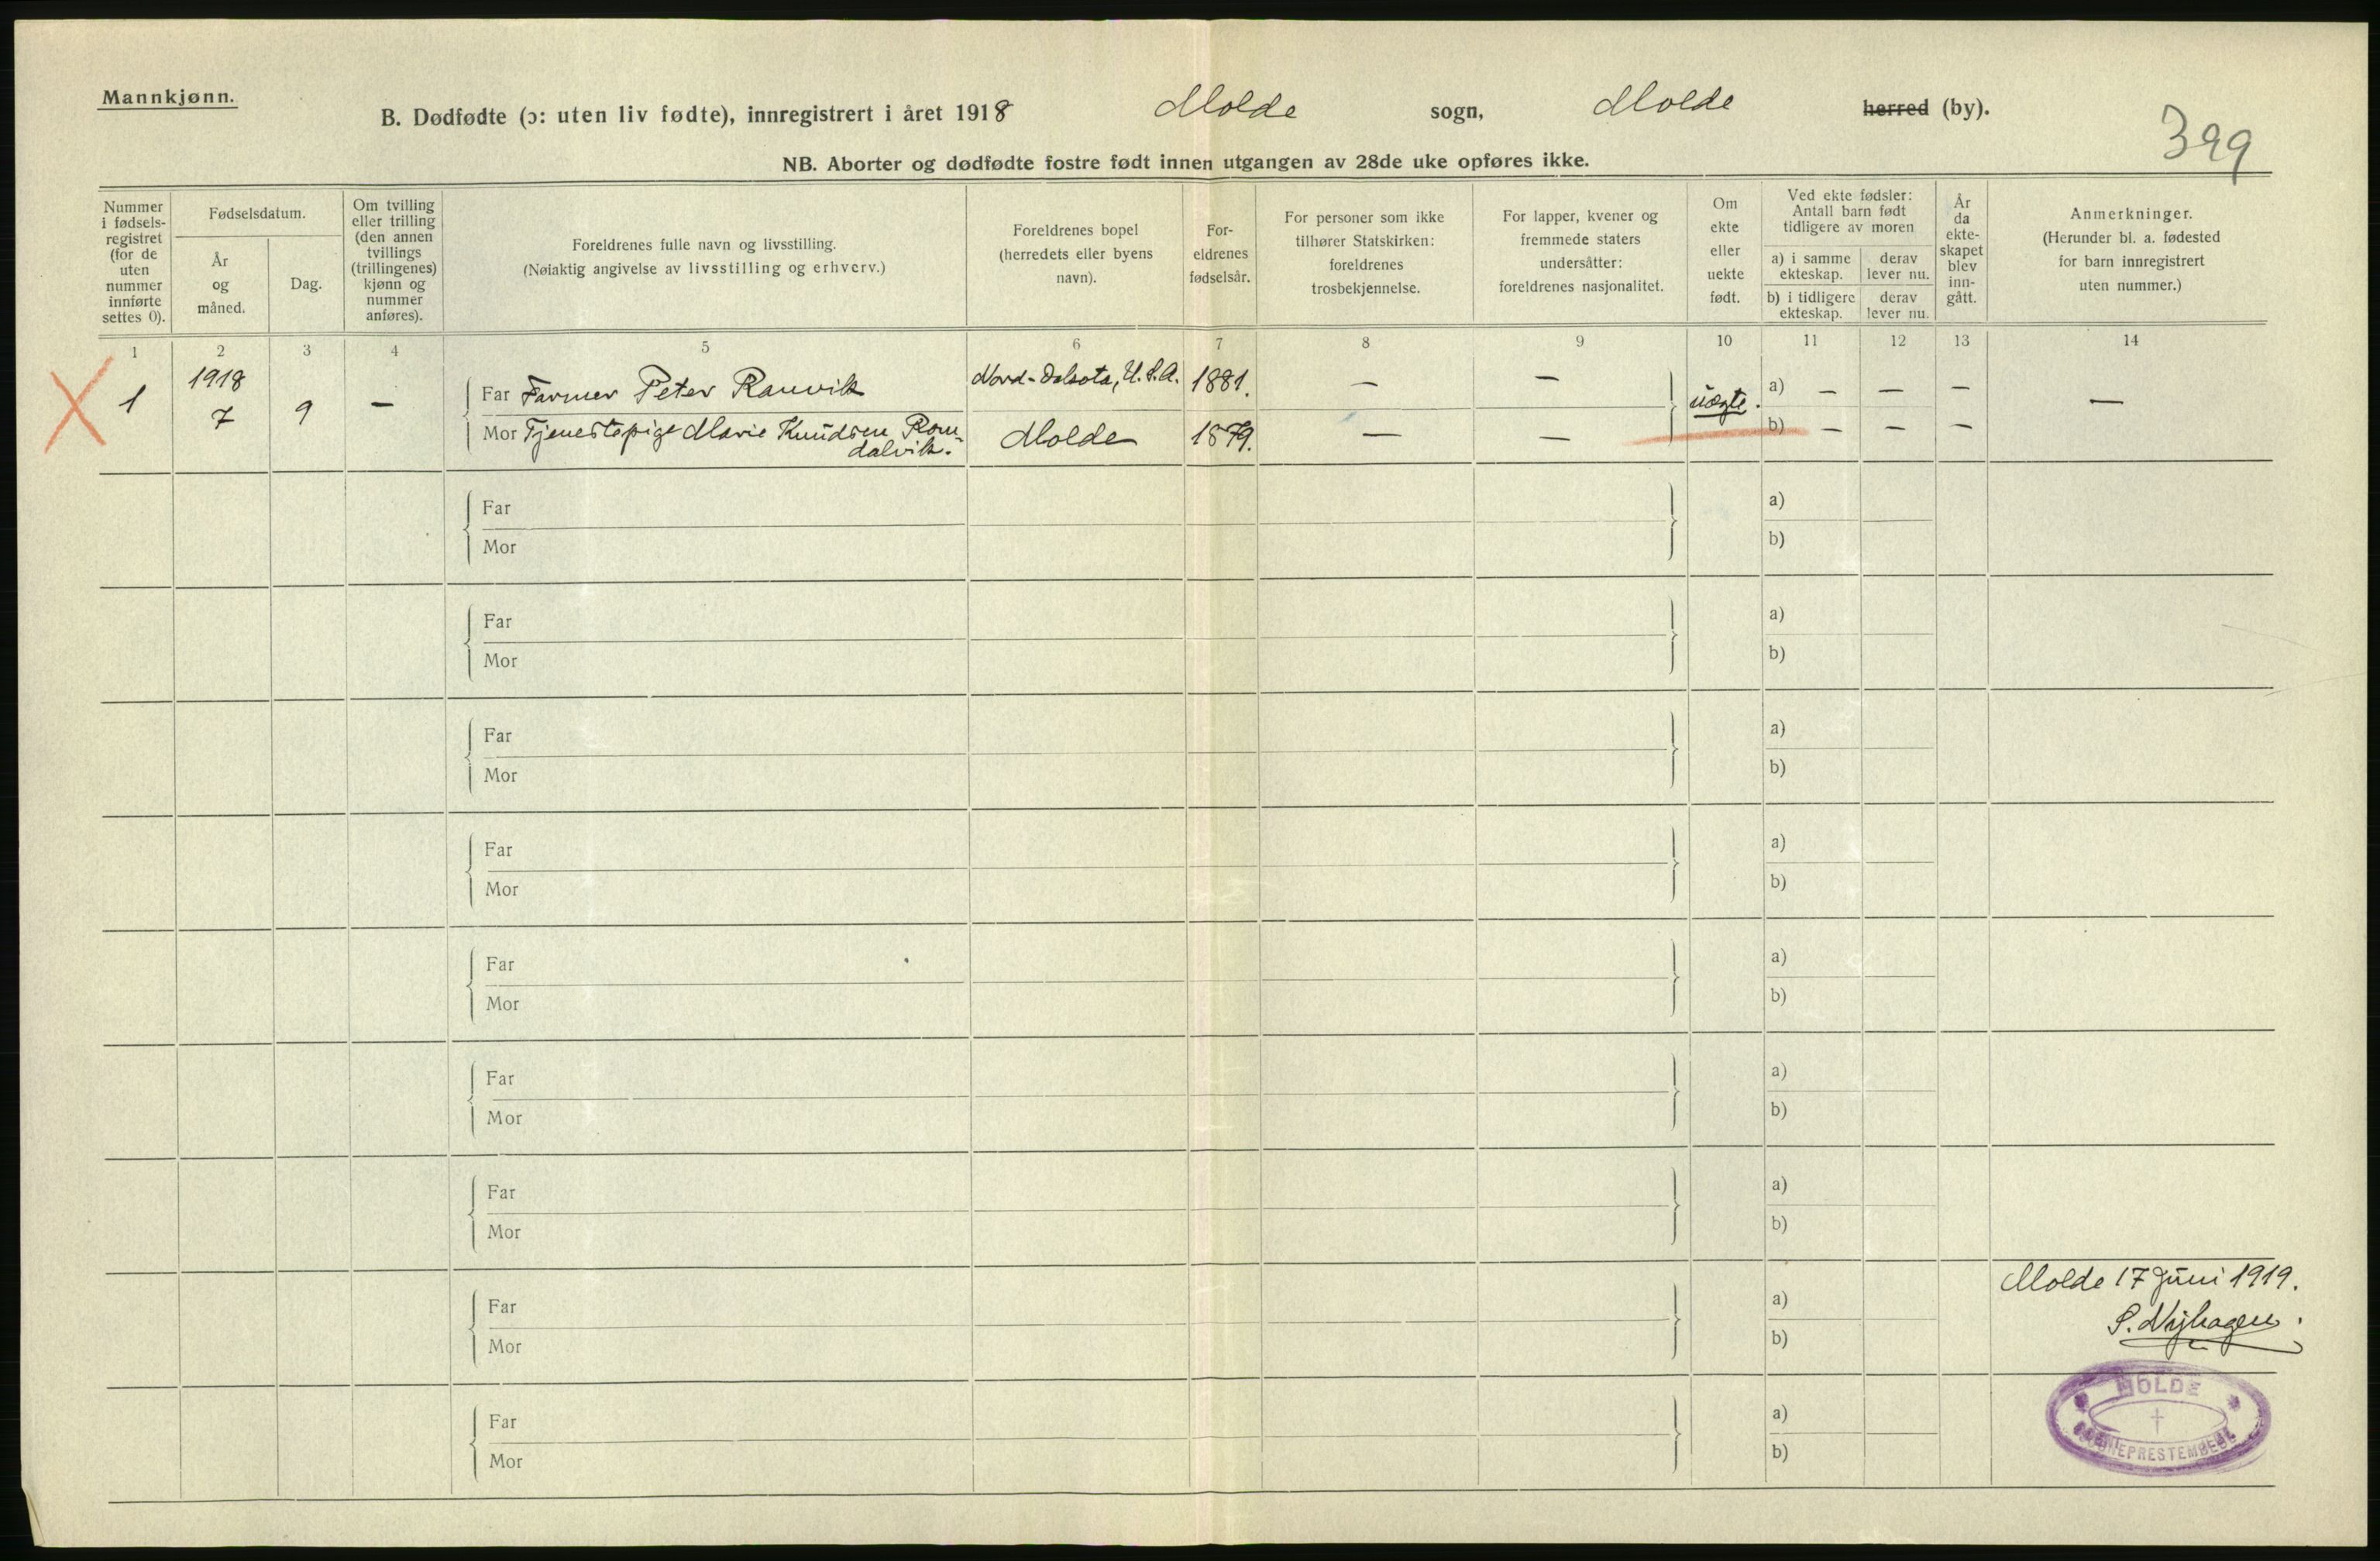 Mannkjønn.
B. Dødfødte (ɔ: uten liv fødte), innregistrert i året 1918 Molde sogn, Molde herred (by).
399
NB. Aborter og dødfødte fostre født innen utgangen av 28de uke opføres ikke.
Nummer i fødsels-registret (for de uten nummer innførte settes 0).
Fødselsdatum.
År og måned.
Dag.
Om tvilling eller trilling (den annen tvillings (trillingenes) kjønn og nummer anføres).
Foreldrenes fulle navn og livsstilling.
(Nøiaktig angivelse av livsstilling og erhverv.)
Foreldrenes bopel (herredets eller byens navn).
For-eldrenes fødselsår.
For personer som ikke tilhører Statskirken: foreldrenes trosbekjennelse.
For lapper, kvener og fremmede staters undersåtter: foreldrenes nasjonalitet.
Om ekte eller uekte født.
Ved ekte fødsler: Antall barn født tidligere av moren
a) i samme ekteskap.
derav lever nu.
b) i tidligere ekteskap.
derav lever nu.
År da ekte-skapet blev inn-gått.
Anmerkninger.
(Herunder bl. a. fødested for barn innregistrert uten nummer.)
1 2 3 4 5 6 7 8 9 10 11 12 13 14
1 1918 7 9 —
Far Farmer Peter Ranvik Nord-Dakota, U.S.A. 1881. — — uægte. a) — — — —
Mor Tjenestepige Marie Knudsen Rom-
dalvik. Molde 1879. — — b) — — —
Far a)
Mor b)
Far a)
Mor b)
Far a)
Mor b)
Far a)
Mor b)
Far a)
Mor b)
Far a)
Mor b)
Far a)
Mor b)
Far a)
Mor b)
Molde 17 Juni 1919.
Far a)
Mor b)
MOLDE